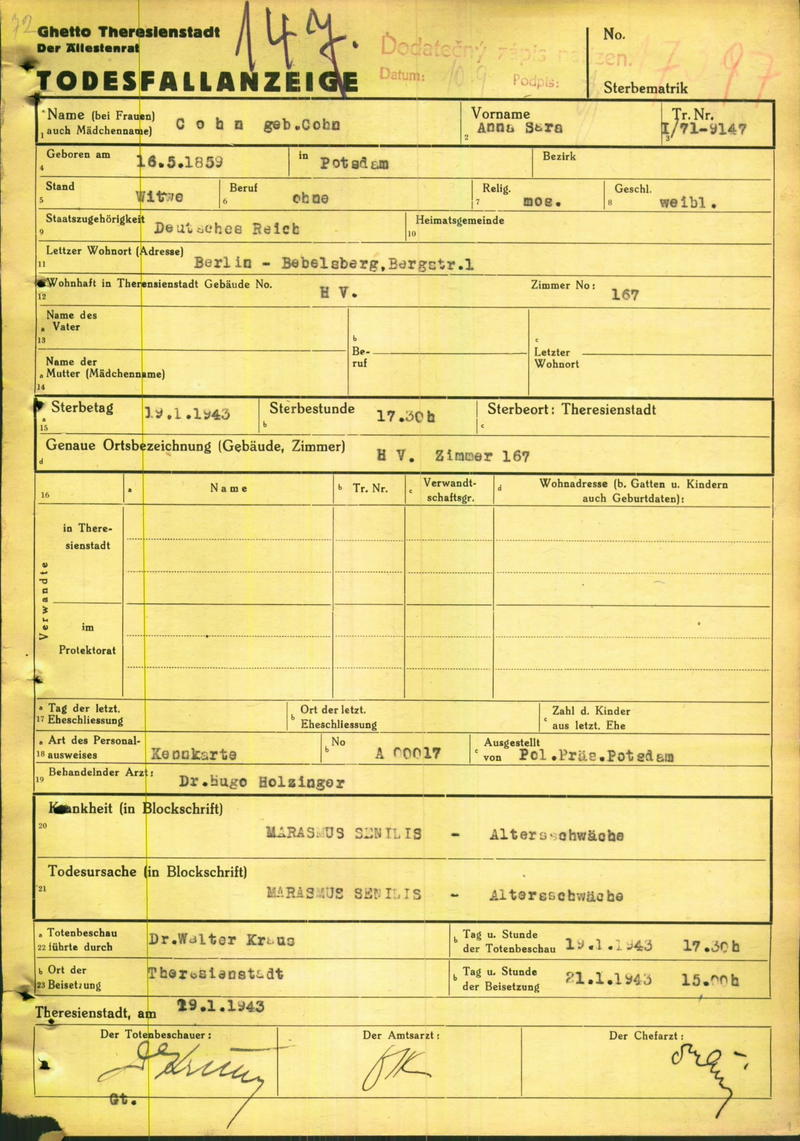 72
Ghetto Theresienstadt
Der Ältestenrat
147.
Dodatečný zápis
Datum: 10.9 Podpis:
No.
Sterbematrik
TODESFALLANZEIGE
1 Name (bei Frauen) auch Mädchenname) Cohn geb.Cohn
2 Vorname Anna Sara
3 Tr. Nr. I/71-9147
4 Geboren am 16.5.1859 in Potsdam Bezirk
5 Stand Witwe 6 Beruf ohne 7 Relig. mos. 8 Geschl. weibl.
9 Staatszugehörigkeit Deutsches Reich 10 Heimatsgemeinde
11 Lettzer Wohnort (Adresse) Berlin - Bebelsberg,Bergstr.1
12 Wohnhaft in Therensienstadt Gebäude No. H V. Zimmer No: 167
13 a Name des Vater
b Beruf
c Letzter Wohnort
14 a Name der Mutter (Mädchenname)
15 a Sterbetag 19.1.1943 b Sterbestunde 17.30h c Sterbeort: Theresienstadt
d Genaue Ortsbezeichnung (Gebäude, Zimmer) H V. Zimmer 167
16 a Name b Tr. Nr. c Verwandtschaftsgr. d Wohnadresse (b. Gatten u. Kindern auch Geburtdaten):
Verwandte
in Theresienstadt
im Protektorat
17 a Tag der letzt. Eheschliessung b Ort der letzt. Eheschliessung c Zahl d. Kinder aus letzt. Ehe
18 a Art des Personalausweises Kennkarte b No A 00017 c Ausgestellt von Pol.Präs.Potsdam
19 Behandelnder Arzt: Dr.Hugo Holzinger
20 Krankheit (in Blockschrift)
MARASMUS SENILIS - Altersschwäche
21 Todesursache (in Blockschrift)
MARASMUS SENILIS - Altersschwäche
22 a Totenbeschau führte durch Dr.Walter Kraus b Tag u. Stunde der Totenbeschau 19.1.1943 17.30h
23 b Ort der Beisetzung Theresienstadt b Tag u. Stunde der Beisetzung 21.1.1943 15.00h
Theresienstadt, am 19.1.1943
Der Totenbeschauer: Der Amtsarzt: Der Chefarzt:
Gt.